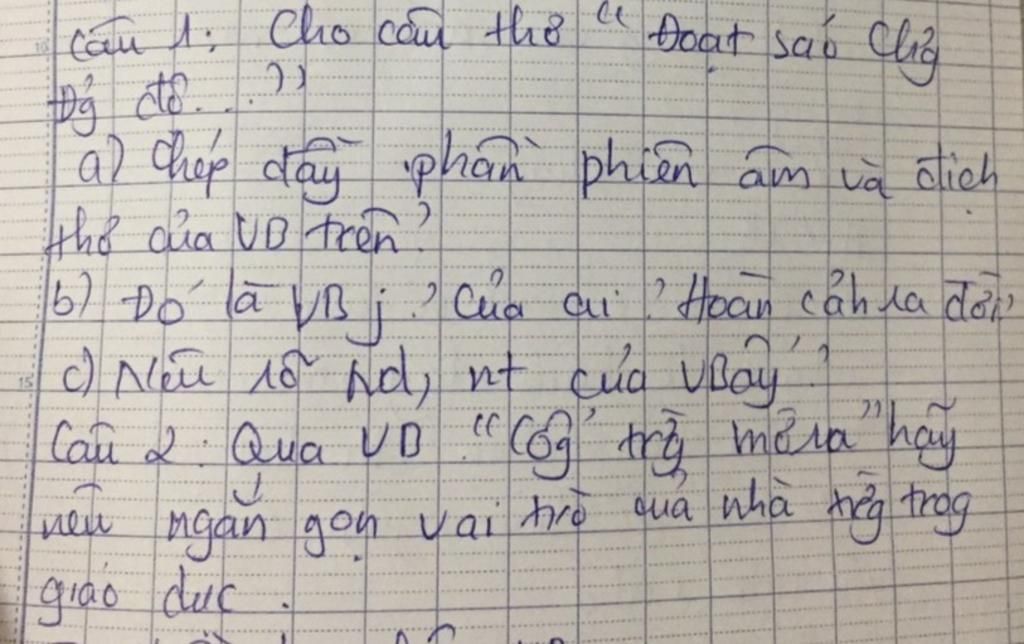 Câu 1: Cho câu thơ "Đoạt sáo Chg
Dg độ..."
a) Chép đầy phần phiên âm và dịch
thơ của VB trên?
b) Đó là VB j? Của ai? Hoàn cảnh ra đời?
c) Nêu rõ nd, nt của VB ấy?
Câu 2: Qua VB "Cổg trườg mở ra" hãy
nêu ngắn gọn vai trò của nhà trườg trog
giáo dục.